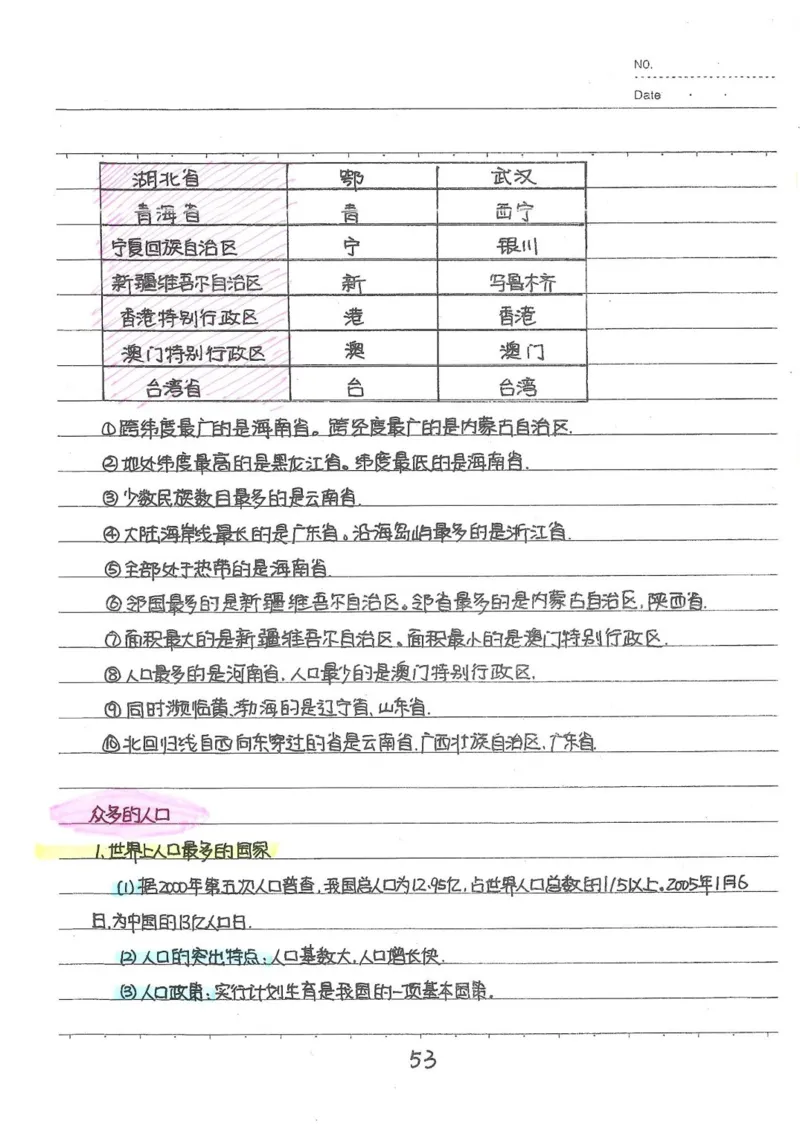 NO.
Date
湖北省 鄂 武汉
青海省 青 西宁
宁夏回族自治区 宁 银川
新疆维吾尔自治区 新 乌鲁木齐
香港特别行政区 港 香港
澳门特别行政区 澳 澳门
台湾省 台 台湾
①跨纬度最广的是海南省。跨经度最广的是内蒙古自治区.
②地处纬度最高的是黑龙江省。纬度最低的是海南省.
③少数民族数目最多的是云南省.
④大陆海岸线最长的是广东省。沿海岛屿最多的是浙江省.
⑤全部处于热带的是海南省.
⑥邻国最多的是新疆维吾尔自治区。邻省最多的是内蒙古自治区,陕西省.
⑦面积最大的是新疆维吾尔自治区。面积最小的是澳门特别行政区.
⑧人口最多的是河南省,人口最少的是澳门特别行政区.
⑨同时濒临黄、渤海的是辽宁省、山东省.
⑩北回归线自西向东穿过的省是云南省,广西壮族自治区,广东省.
众多的人口
1、世界上人口最多的国家
(1)据2000年第五次人口普查,我国总人口为12.95亿,占世界人口总数的1/5以上。2005年1月6
日,为中国的13亿人口日.
(2)人口的突出特点:人口基数大,人口增长快.
(3)人口政策:实行计划生育是我国的一项基本国策。
53